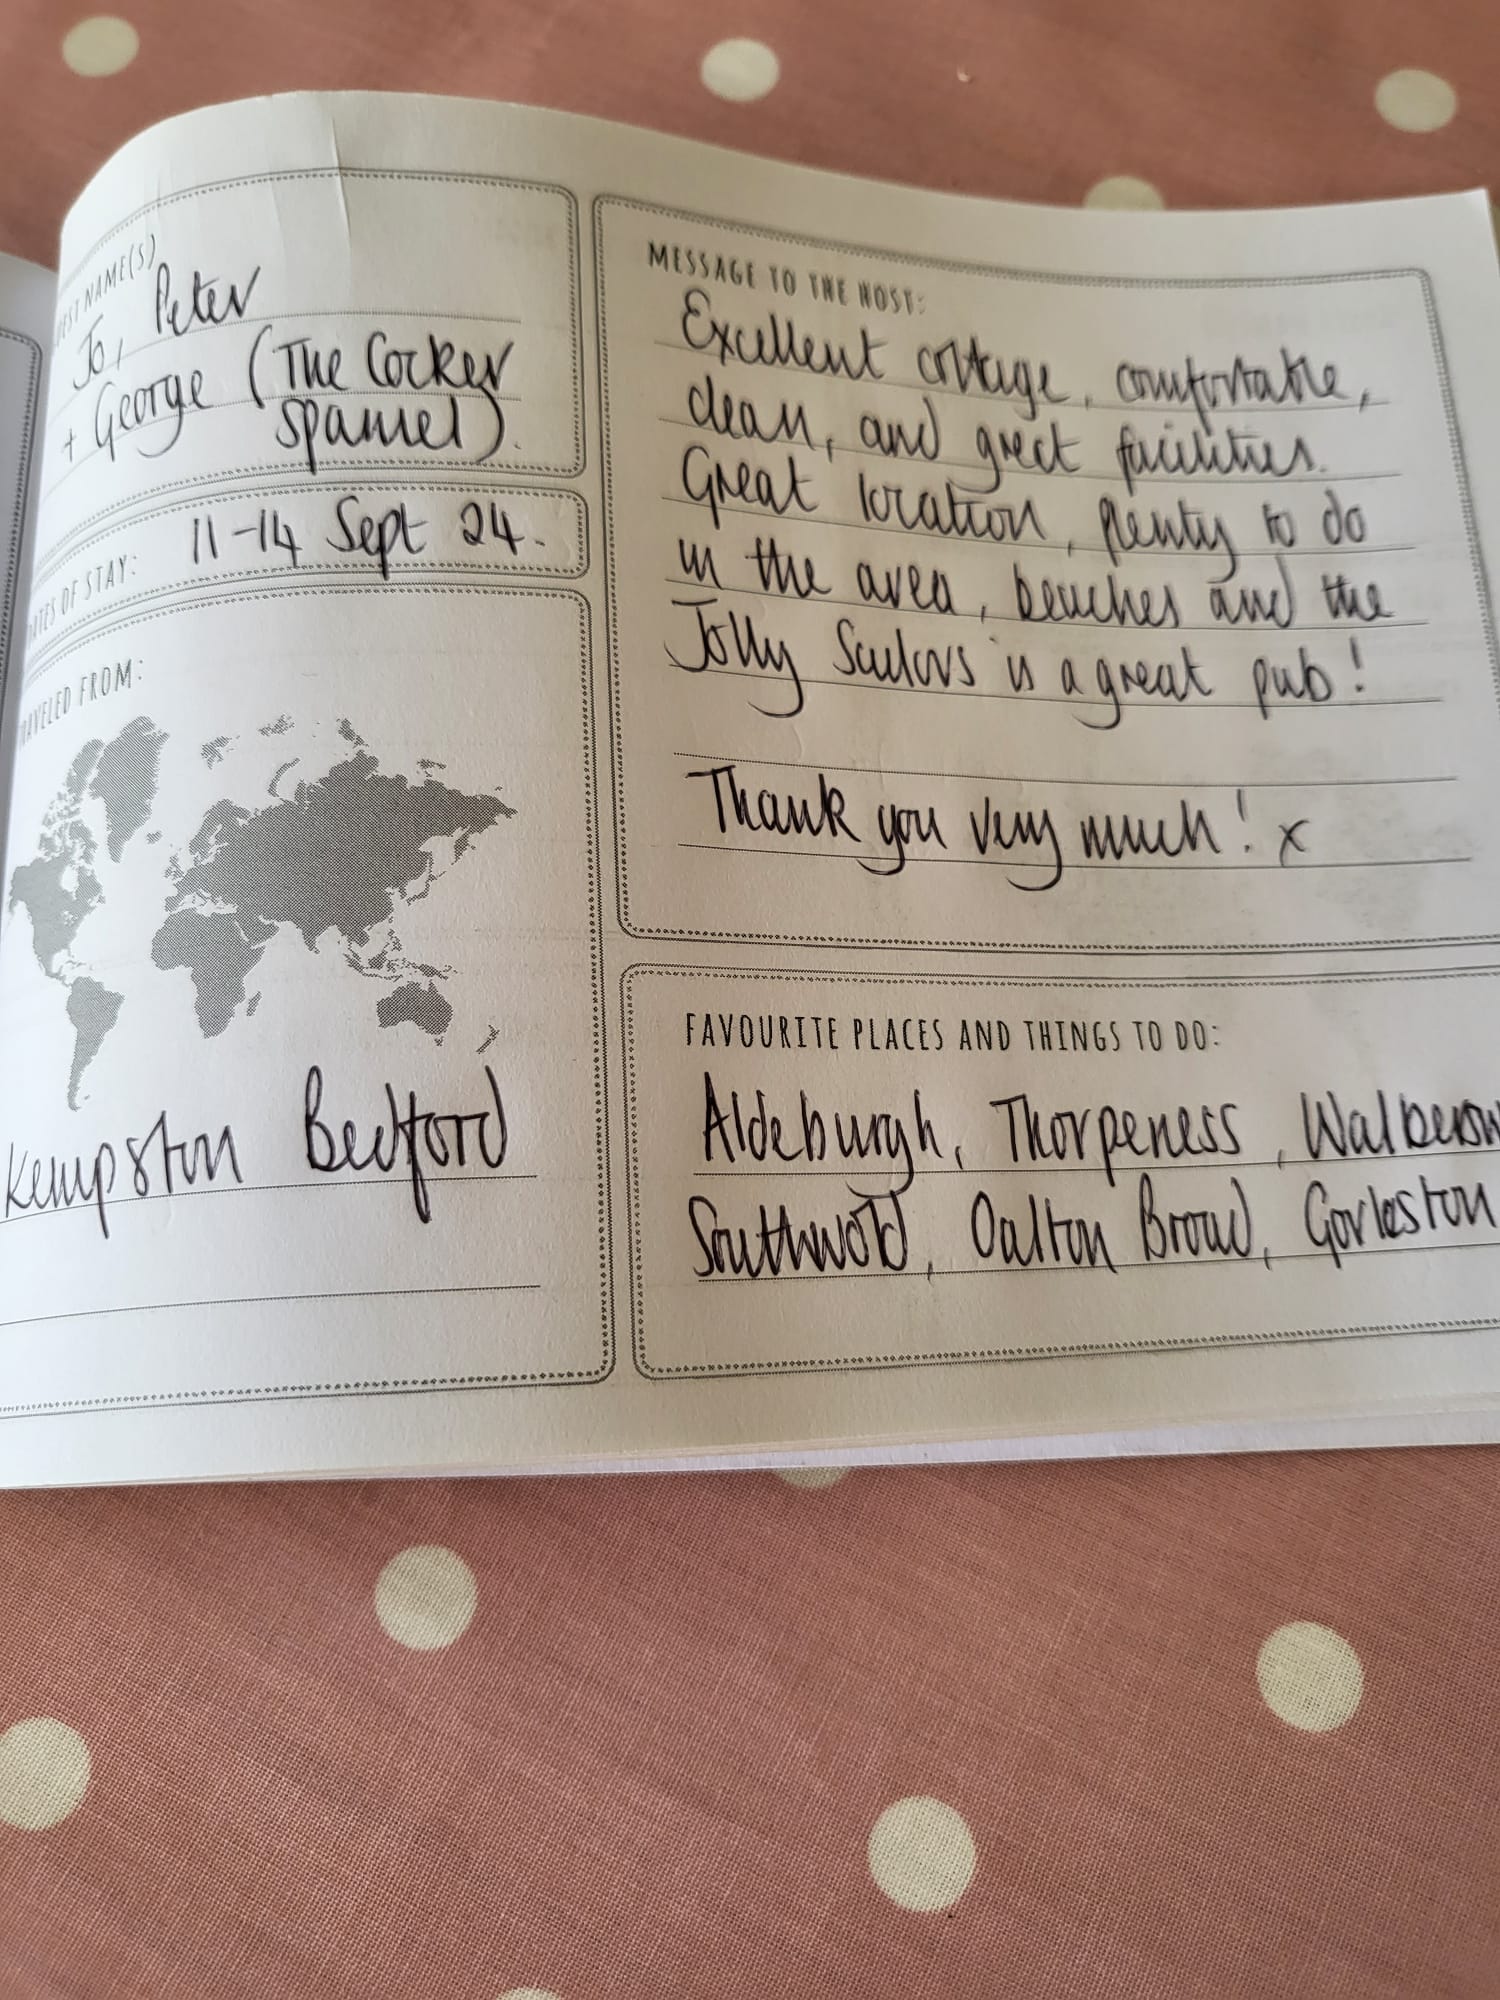 GUEST NAME(S)
Jo, Peter
+ George (The Cocker
spaniel).
DATES OF STAY: 11-14 Sept 24.
TRAVELED FROM:
Kempston Bedford
MESSAGE TO THE HOST:
Excellent cottage, comfortable,
clean, and great facilities.
Great location, plenty to do
in the area, beaches and the
Jolly Sailors is a great pub!
Thank you very much! x
FAVOURITE PLACES AND THINGS TO DO:
Aldeburgh, Thorpeness,
Southwold, Oulton Broad, Gorleston